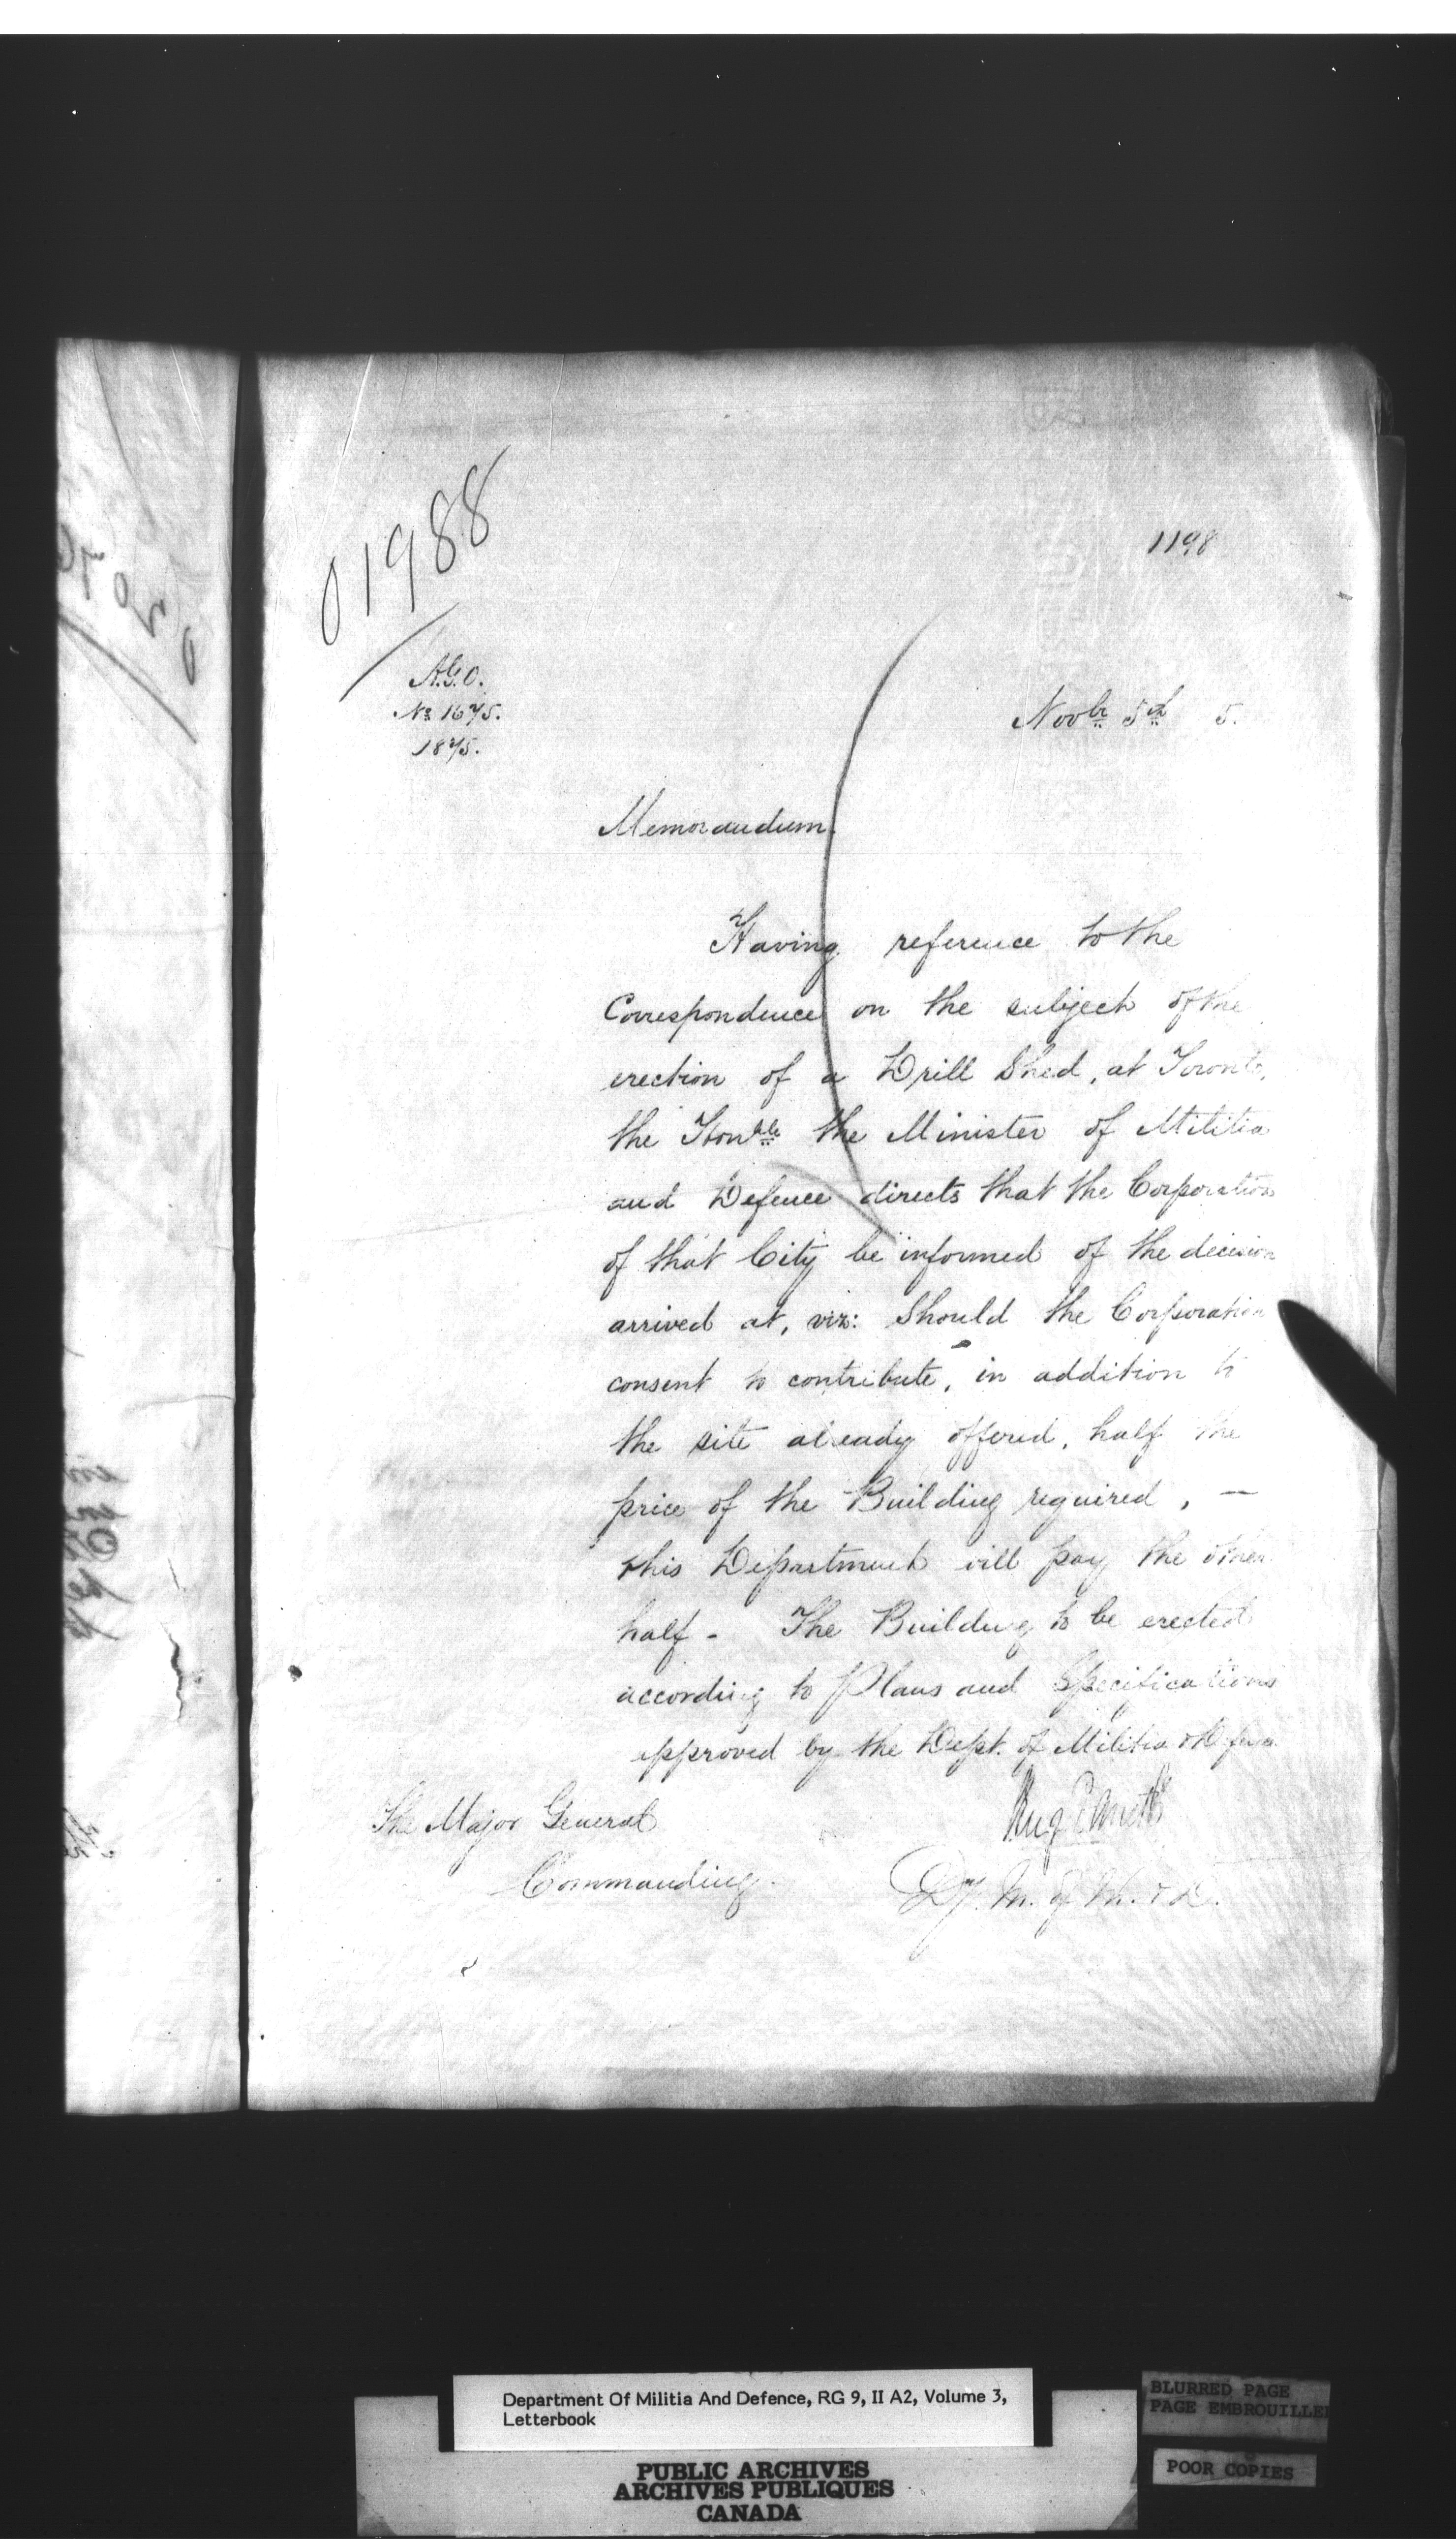 01988
1198
A.G.O.
No 1675.
1875.
Novbr 5th 5.
Memorandum.
Having reference to the
Correspondence on the subject of the
erection of a Drill Shed, at Toronto,
the Honble the Minister of Militia
and Defence directs that the Corporation
of that City be informed of the decision
arrived at, viz: Should the Corporation
consent to contribute, in addition to
the site already offered, half the
price of the Building required, —
this Department will pay the other
half - The Building to be erected
according to Plans and Specifications
approved by the Dept. of Militia & Defence
The Major General
Commanding.
Dy. M. of M. & D.
Department Of Militia And Defence, RG 9, II A2, Volume 3,
Letterbook
PUBLIC ARCHIVES
ARCHIVES PUBLIQUES
CANADA
BLURRED PAGE
PAGE EMBROUILLEE
POOR COPIES